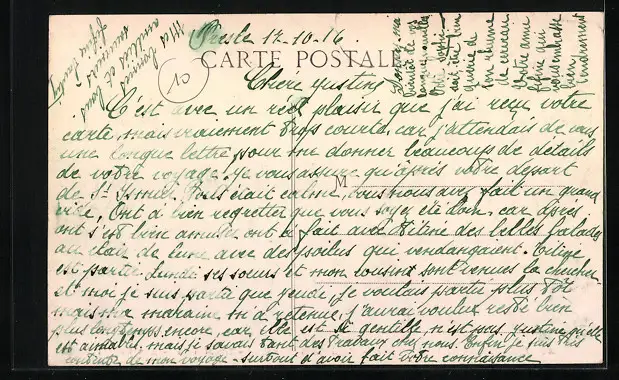 Presle 12-10-16
CARTE POSTALE
10
Chère Justine
C'est avec un réel plaisir que j'ai reçu votre
carte, mais vraiement trop courte, car j'attendais de vous
une longue lettre pour me donner beaucoups de détails
de votre voyage. Je vous assure qu'après votre départ
de St tout était calme, vous nous avez fait un grand
vide, ont a bien regretter que vous soyez été loin, car après
ont s'est bien amuser ont a fait avec des belles balades
au clair de lune avec des poilus qui vendangaient.
est partie Lundi ses sœurs et mon cousin sont venues la chercher
et moi je suis partie que jeudi, je voulais partir plus tôt
mais ma marraine m'a retenue, j'aurai voulue resté bien
plus longtemps encore car elle est si gentille n'est pas Justine qu'elle
est aimable, mais je savais tant des travaux chez nous. Enfin je suis très
contente de mon voyage surtout d'avoir fait votre connaissance
Donnez moi
bientôt de vos
longues nouvelles
votre
soit été bien
guérie de
son rhume
de cerveau
Votre amie
qui
vous embrasse
bien
tendrement